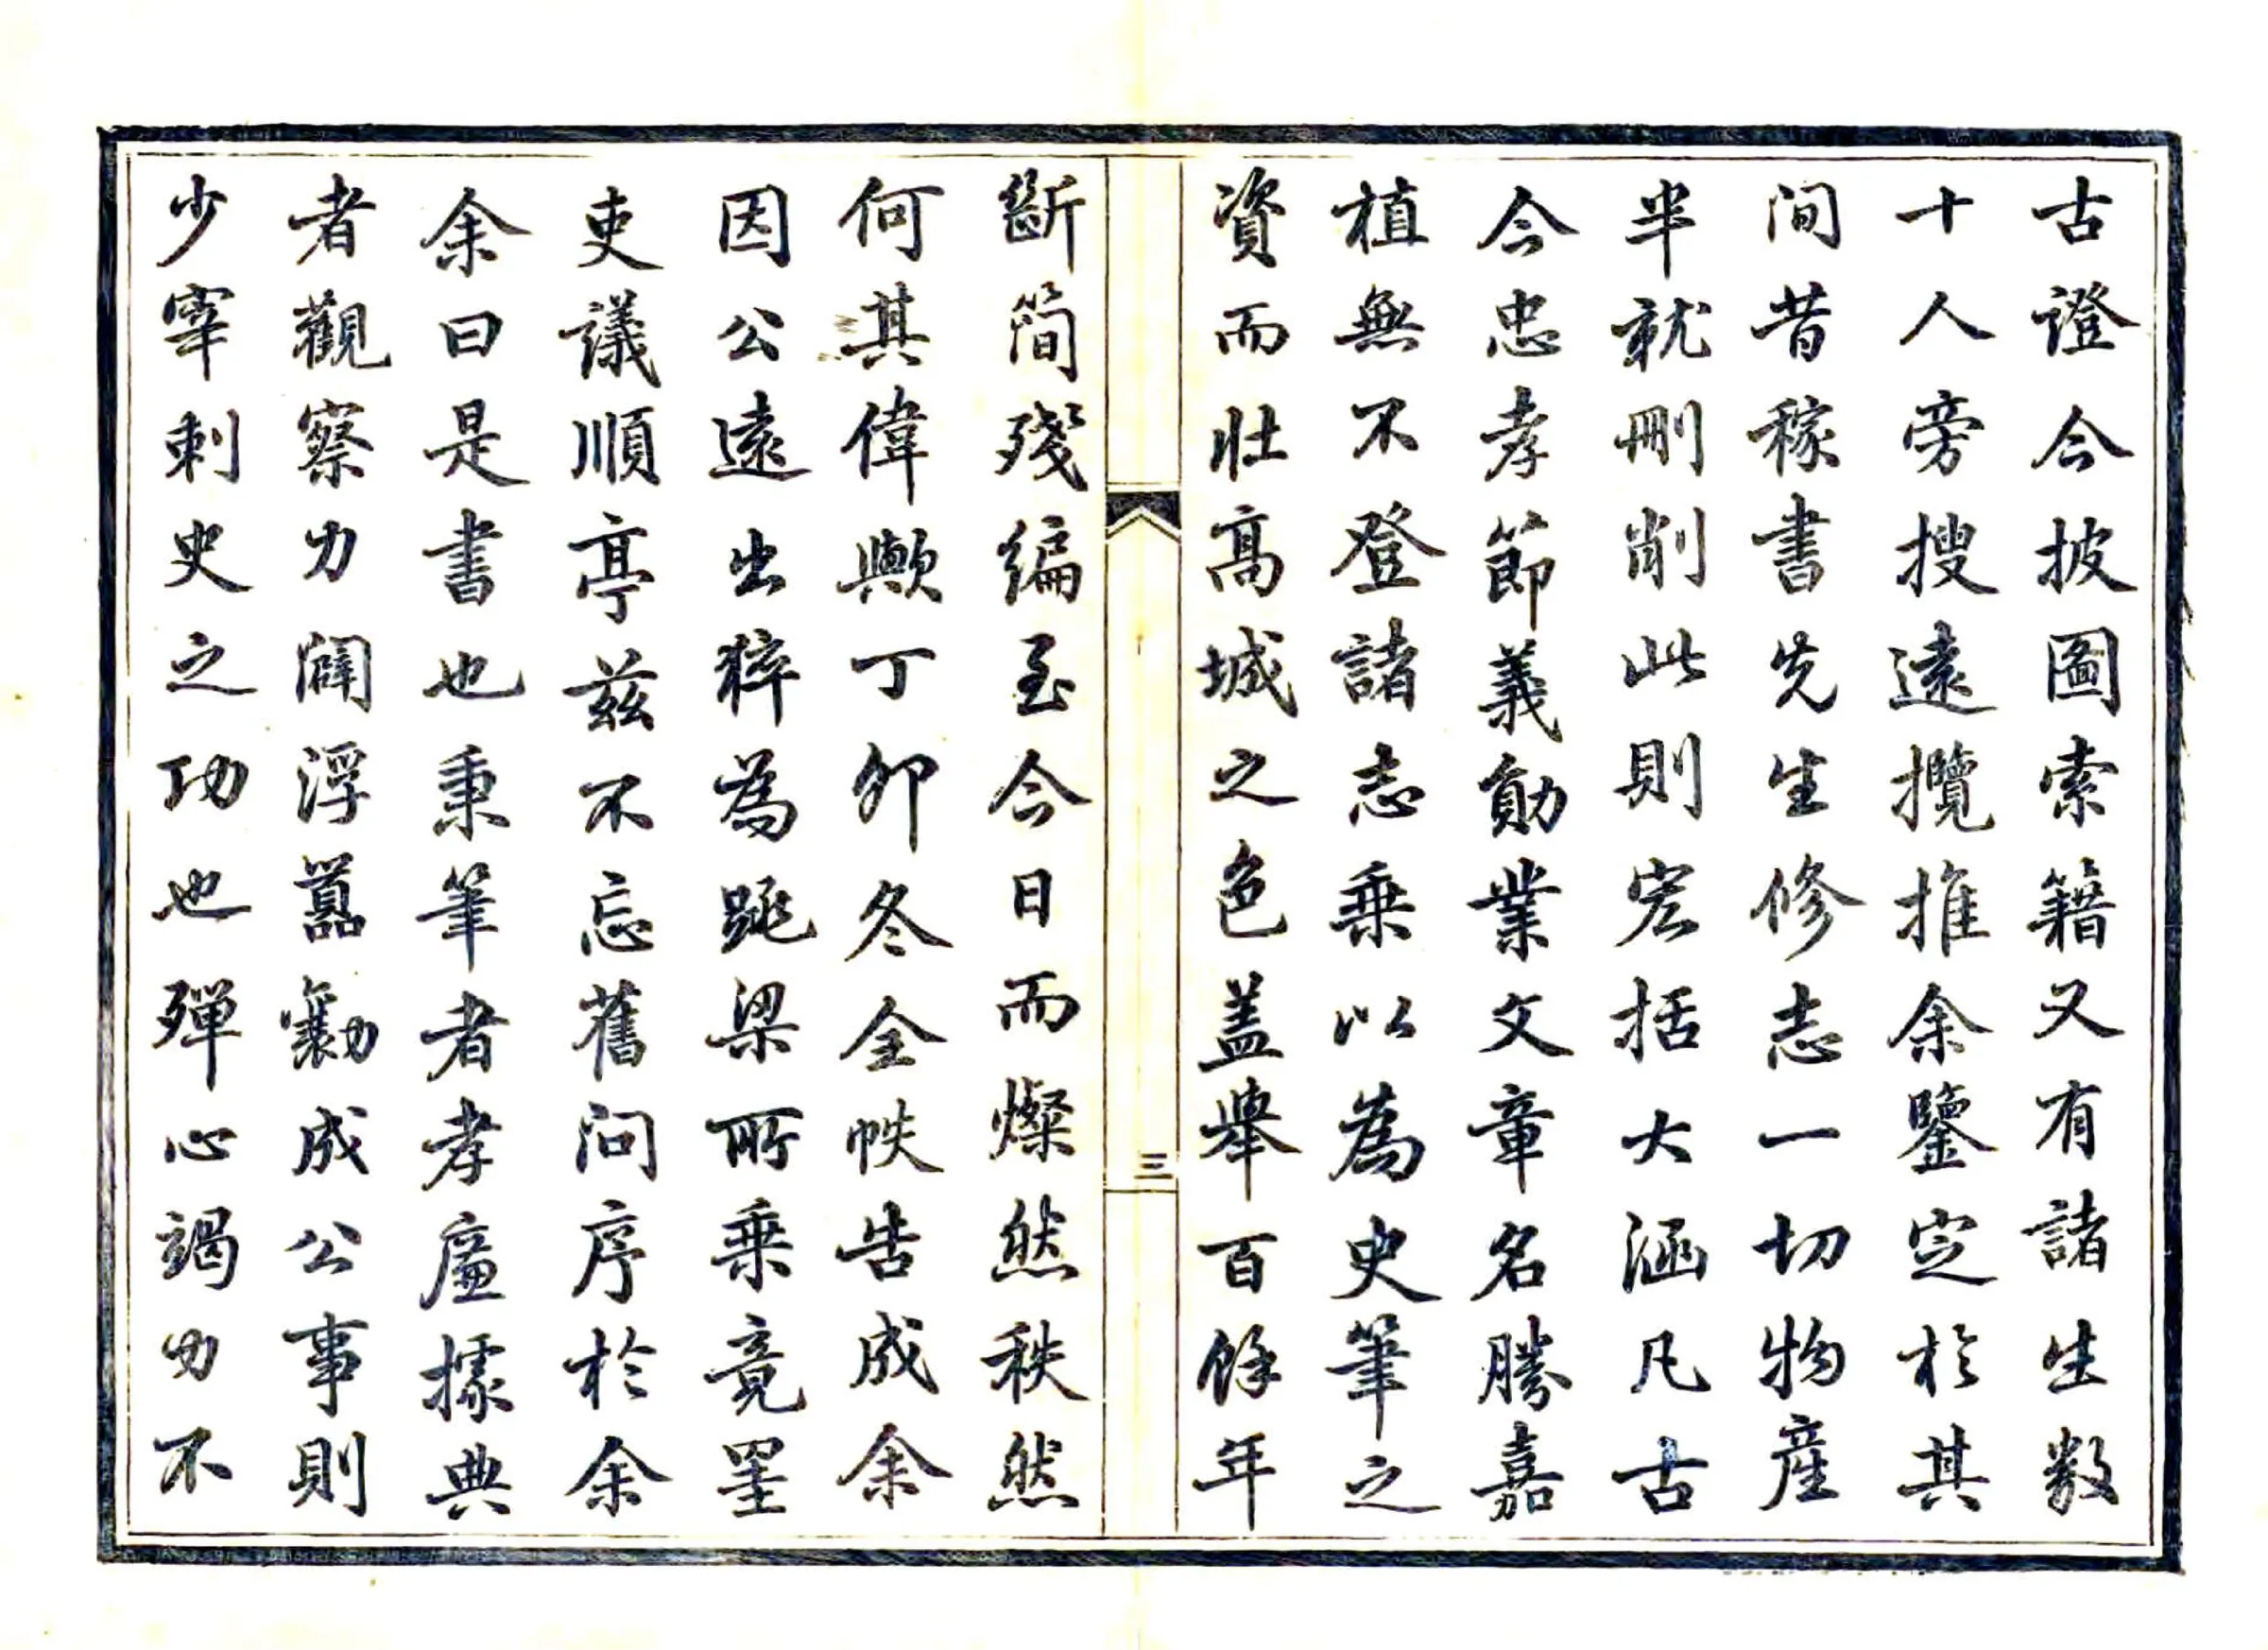 古證今披圖索籍又有諸生數
十人旁搜遠攬推余鑒定於其
間昔稼書先生修志一切物產
半就刪削此則宏括大涵凡古
今忠孝節義勛業文章名勝嘉
植無不登諸志乘以為史筆之
資而壯高城之色蓋舉百餘年
三
斷簡殘編至今日而燦然秩然
何其偉歟丁卯冬全帙告成余
因公遠出猝為跳梁所乘竟罣
吏議順亭茲不忘舊問序於余
余曰是書也秉筆者孝廉據典
者觀察力闢浮囂勷成公事則
少宰刺史之功也殫心竭力不